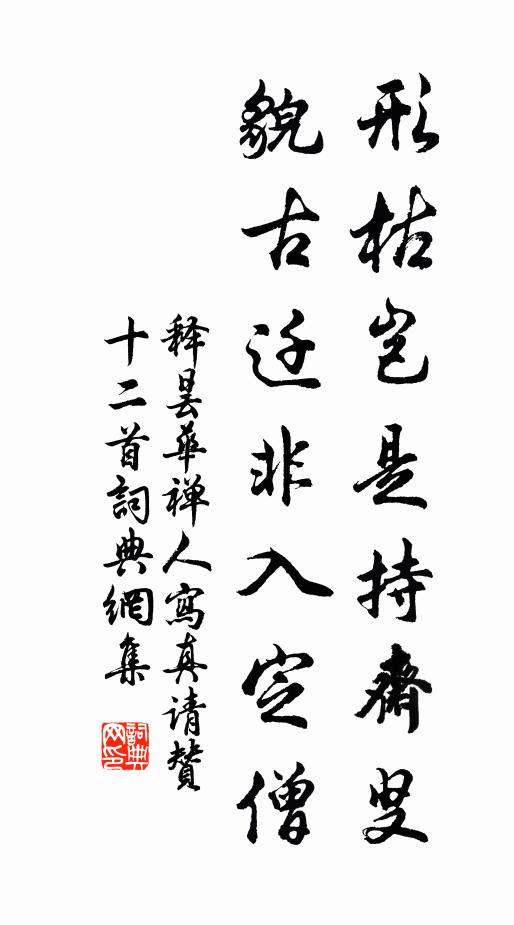 形枯岂是持齋叟
貌古还非入定僧
释昙華禅人寫真请贊
十二首詞典網集
詞典网印